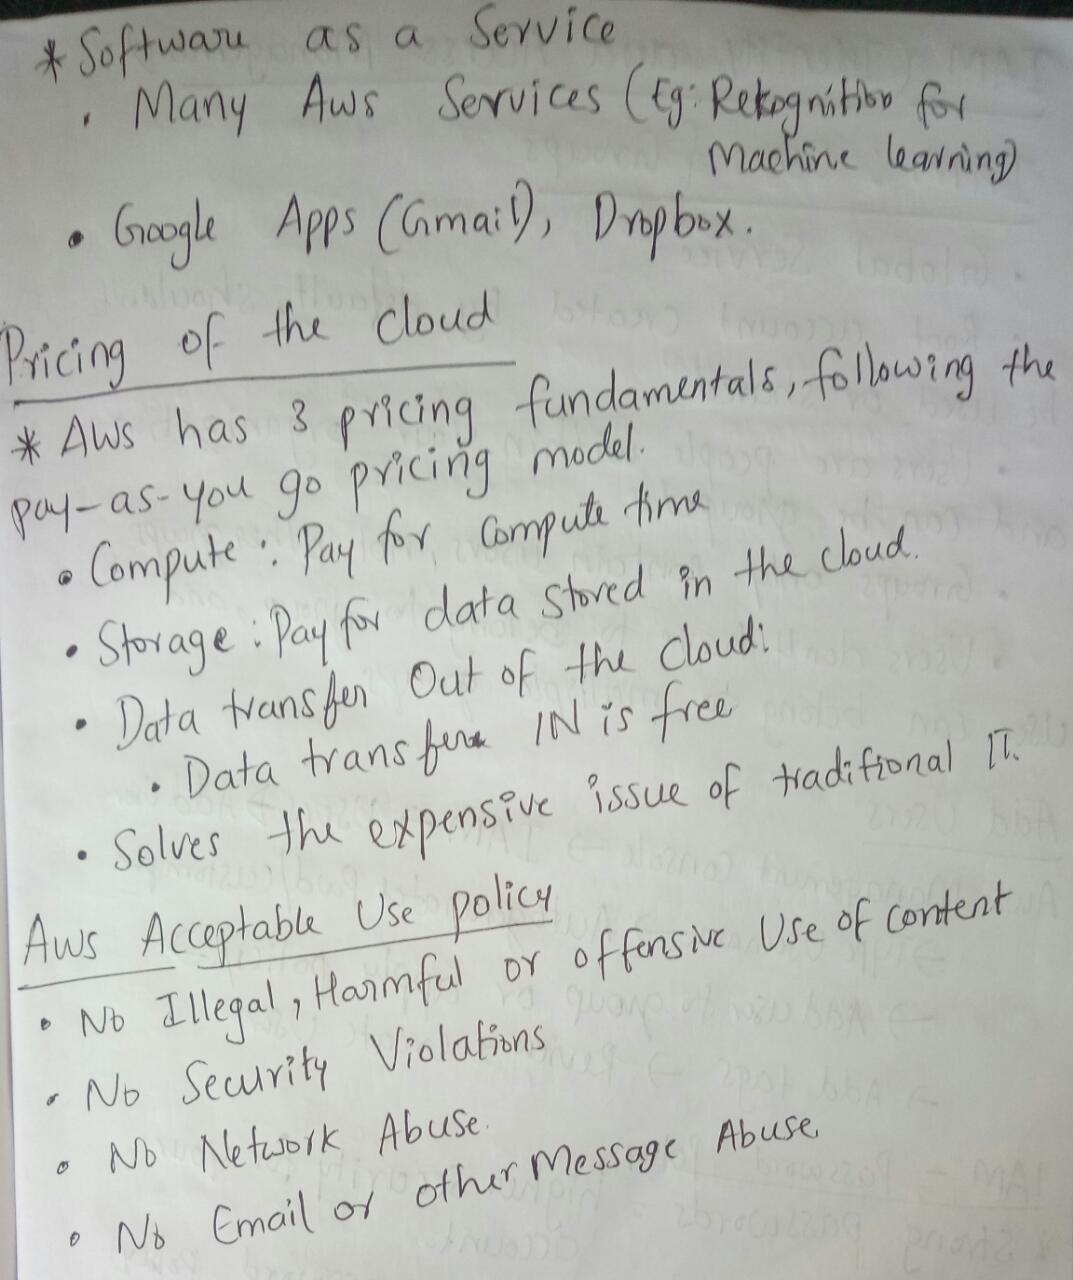 * Software as a Service
• Many Aws Services (Eg: Rekognition for
Machine learning)
• Google Apps (Gmail), Dropbox.
Pricing of the cloud
* AWS has 3 pricing fundamentals, following the
pay-as-you go pricing model.
• Compute : Pay for compute time
• Storage : Pay for data stored in the cloud.
• Data transfer Out of the cloud:
• Data transfer IN is free
• Solves the expensive issue of traditional IT.
Aws Acceptable Use policy
• No Illegal, Harmful or offensive Use of content
• No Security Violations
• No Network Abuse.
• No Email or other Message Abuse